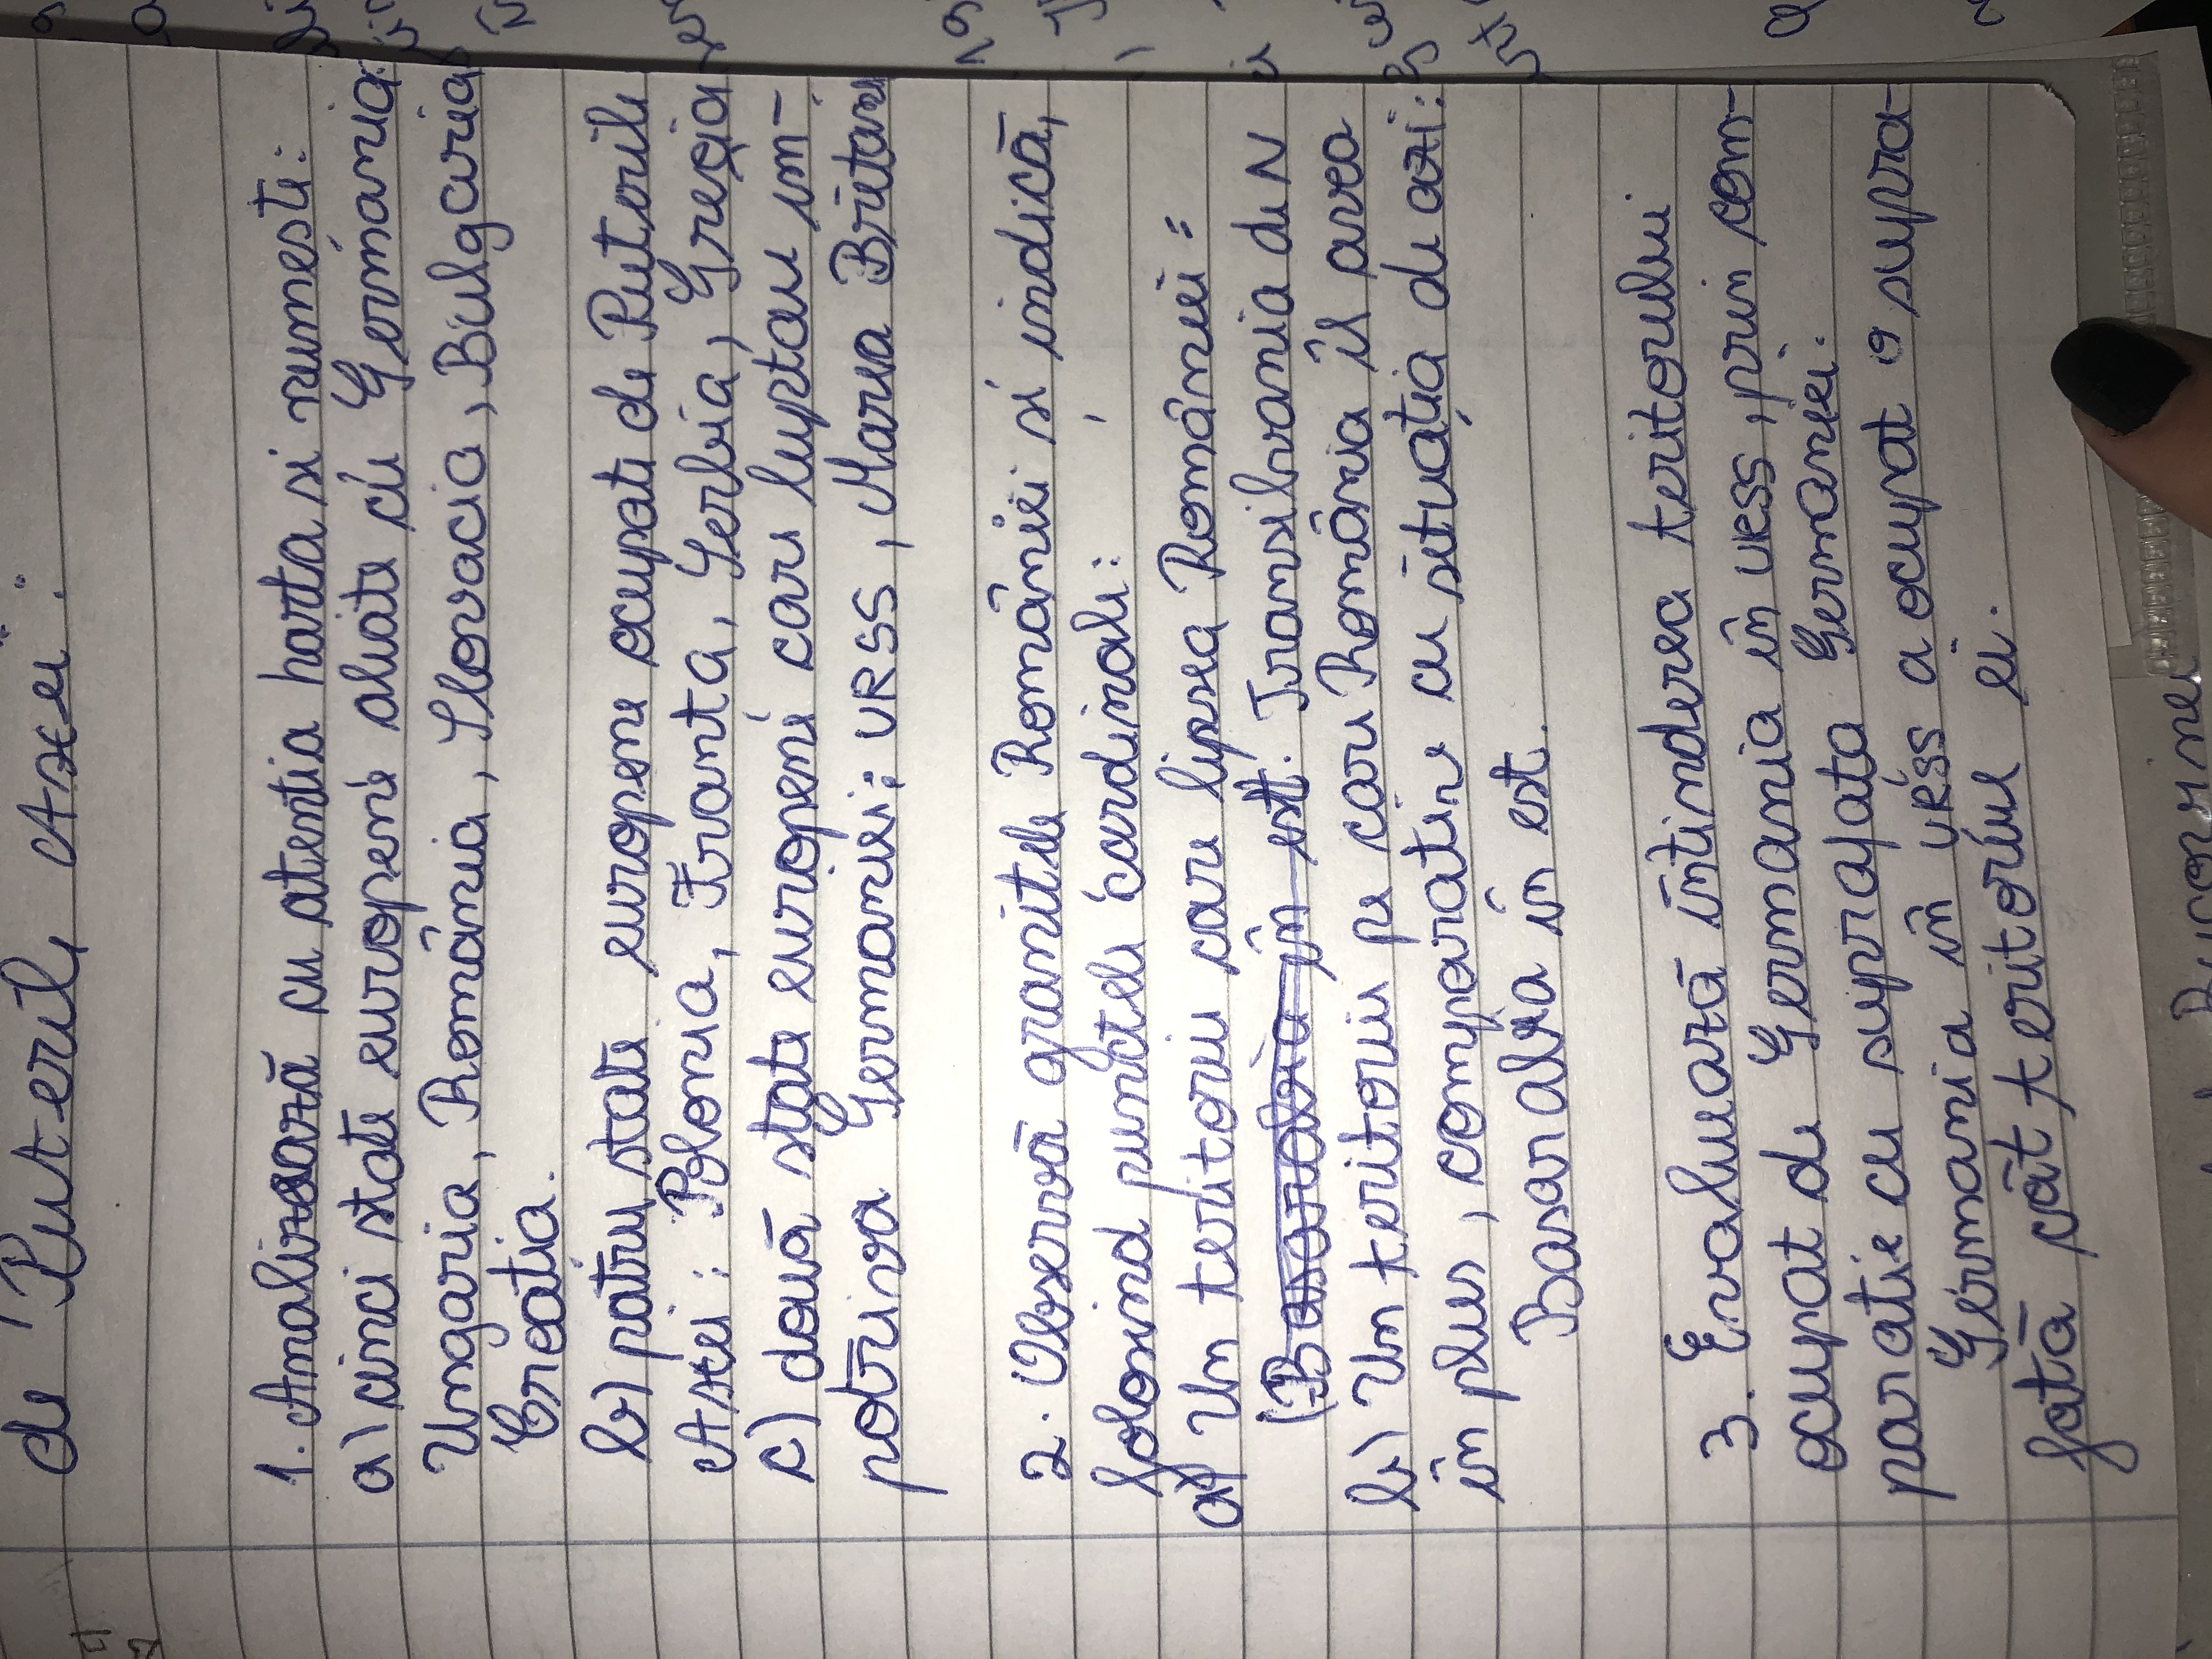 de Puterile Axei":
1. Analizează cu atentia harta si numeste:
a) cinci state europene aliate cu Germania
Ungaria, România, Slovacia, Bulgaria
Croatia.
b) patru state europene ocupate de Puterile
Axei: Polonia, Franta, Serbia, Grecia
c) două state europene care luptau îm-
potriva Germaniei: URSS, Marea Britani
2. Observă granitele României si indică,
folosind punctele cardinale:
a) Un teritoriu care lipsea României:
(Basarabia în est. Transilvania de N
b) Un teritoriu pe care România îl avea
în plus, comparativ cu situația de azi:
Basarabia în est.
3. Evaluează întinderea teritoriului
ocupat de Germania în URSS, prin com-
paratie cu suprafata Germaniei.
Germania în URSS a ocupat o supra-
fată cât teritoriul ei.